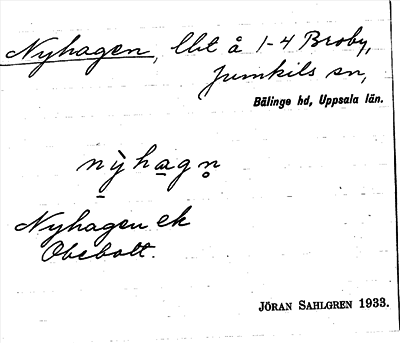 Nyhagen, lht å 1-4 Broby,
Jumkils sn,
Bälinge hd, Uppsala län.
nỳhagn̥
Nyhagen ek
Obebott.
JÖRAN SAHLGREN 1933.